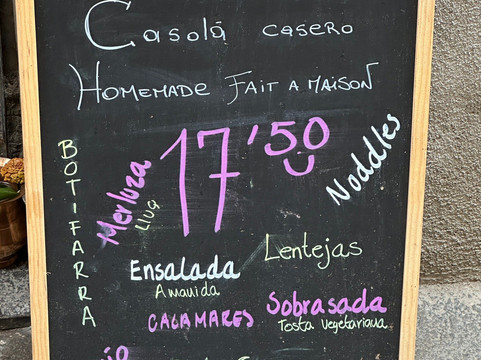 Casolá casero
HOMEMADE FAIT A MAISON
17'50
Noddles
BOTIFARRA
Merluza
Lluç
Lentejas
Ensalada
Amanida
CALAMARES
Sobrasada
Tosta Vegetariana